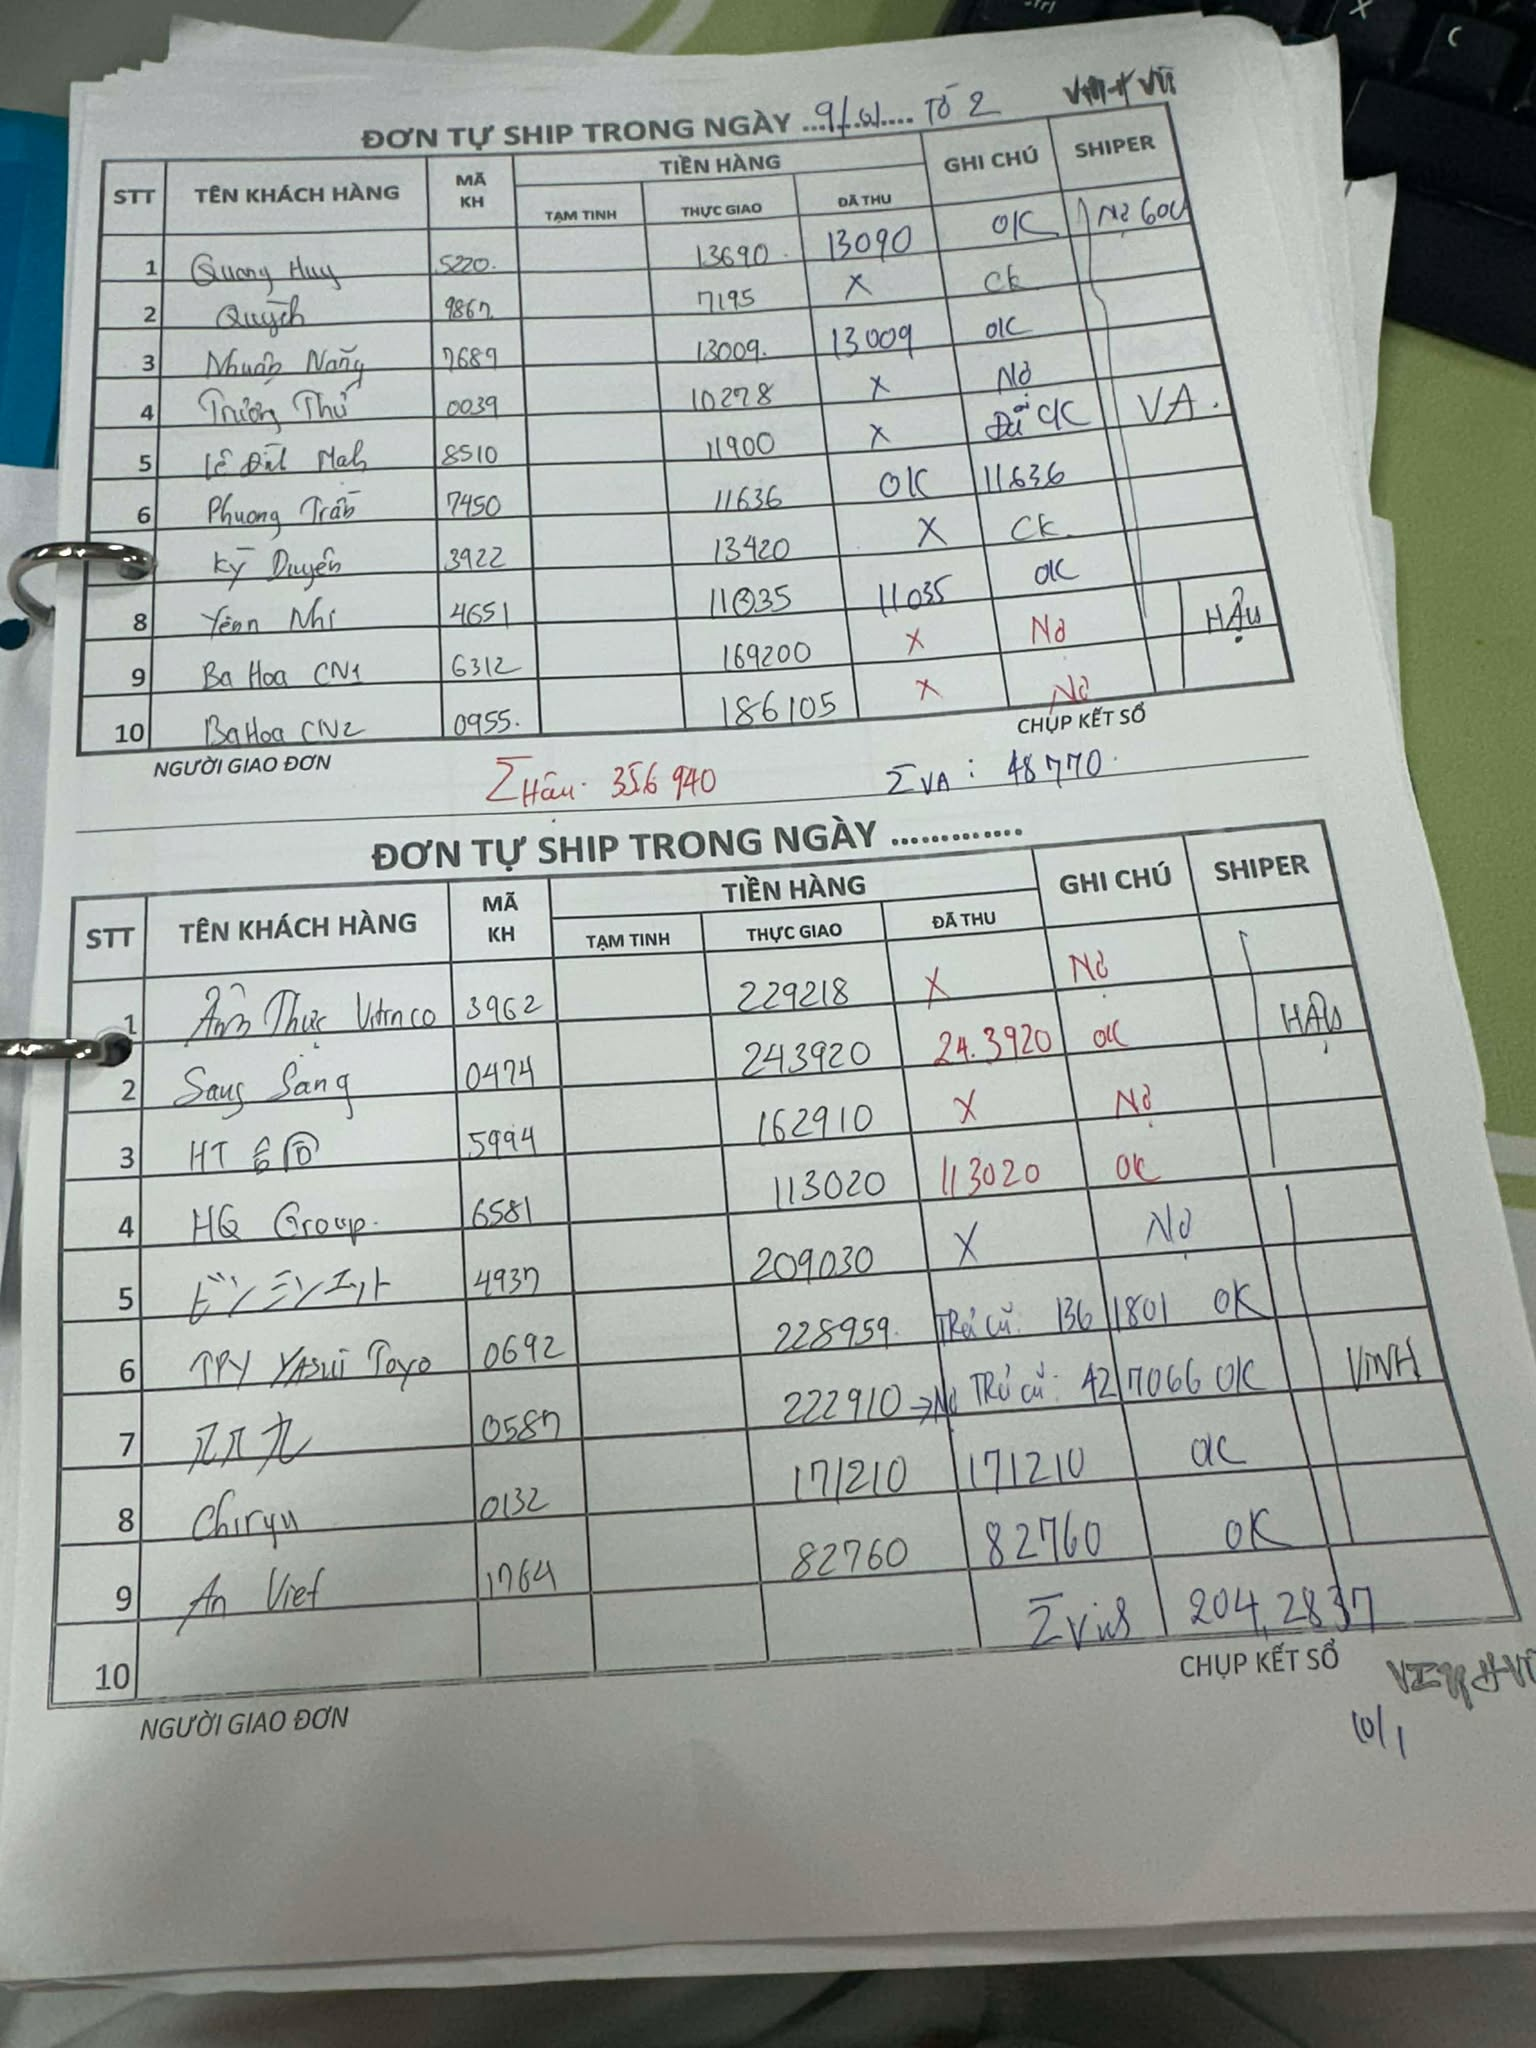 ĐƠN TỰ SHIP TRONG NGÀY ...9/01.... TỔ 2
STT TÊN KHÁCH HÀNG MÃ KH TIỀN HÀNG GHI CHÚ SHIPER
TẠM TINH THỰC GIAO ĐÃ THU
1 Quang Huy 5220. 13690. 13090 OK Nợ 600
2 Quỳnh 9867 7195 X CK
3 7689 13009. 13009 OK
4 Trương Thứ 0039 10278 X Nợ
5 8510 11900 X Đã CK VA.
6 Phuong Trần 7450 11636 OK 11636
Kỳ Duyên 3922 13420 X CK.
8 Yến Nhi 4651 11035 11035 OK
9 Ba Hoa CN1 6312 169200 X Nợ HẬU
10 Ba Hoa CN2 0955. 186105 X Nợ
NGƯỜI GIAO ĐƠN CHỤP KẾT SỔ
Σ Hậu: 356 940 Σ VA: 48770.
ĐƠN TỰ SHIP TRONG NGÀY .............
STT TÊN KHÁCH HÀNG MÃ KH TIỀN HÀNG GHI CHÚ SHIPER
TẠM TINH THỰC GIAO ĐÃ THU
1 Ẩm Thực 3962 229218 X Nợ
2 Sang Sảng 0474 243920 24.3920 OK HẬU
3 HT 5994 162910 X Nợ
4 HQ Group. 6581 113020 113020 OK
5 ビンミンエット 4937 209030 X Nợ
6 TPY YASUI Toyo 0692 228959. Trả cũ: 136 1801 OK
7 0587 222910 → Nợ Trả cũ: 42 7066 OK VINH
8 Chiryu 0132 171210 171210 OK
9 An Việt 1764 82760 82760 OK
10 Σ 204,2837
NGƯỜI GIAO ĐƠN CHỤP KẾT SỔ
10/1